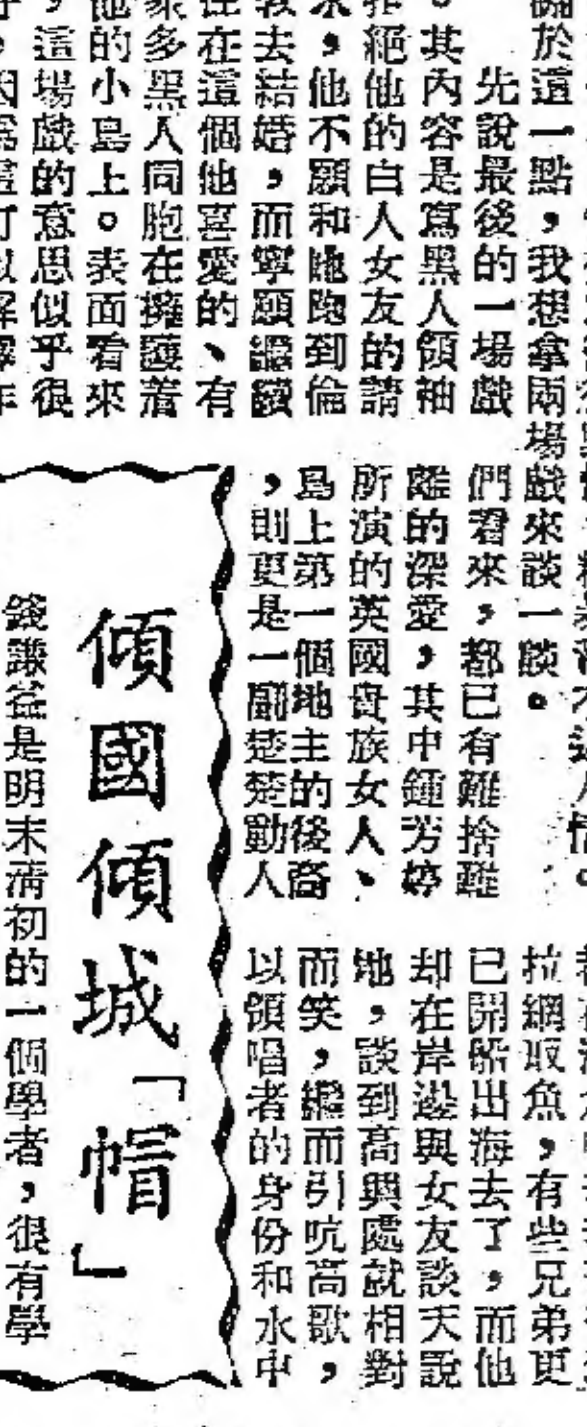 於這一點，我想拿兩場
先說最後的一場戲
。其內容是寫黑人領袖
拒絕他的白人女友的請
求，他不願和她跑到倫
敦去結婚，而寧願繼續
住在這個他喜愛的、有
衆多黑人同胞在擁護着
他的小島上。表面看來
，這場戲的意思似乎很
戲來談一談。
們看來，都已有難捨難
離的深愛，其中鍾芳婷
所演的英國貴族女人、
島上第一個地主的後裔
，則更是一副楚楚動人
拉網取魚，有些兄弟更
已開船出海去了，而他
却在岸邊與女友談天說
地，談到高興處就相對
而笑，繼而引吭高歌，
以領唱者的身份和水中
傾國傾城「帽」
錢謙益是明末清初的一個學者，很有學